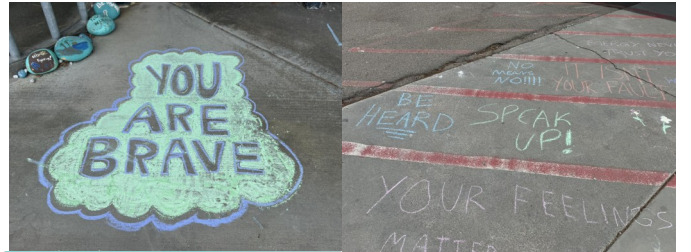 YOU
ARE
BRAVE
NO
MEANS
NO!!!!
IT ISN'T
YOUR FAULT
BE
HEARD
SPEAK
UP!
YOUR FEELINGS
MATTER